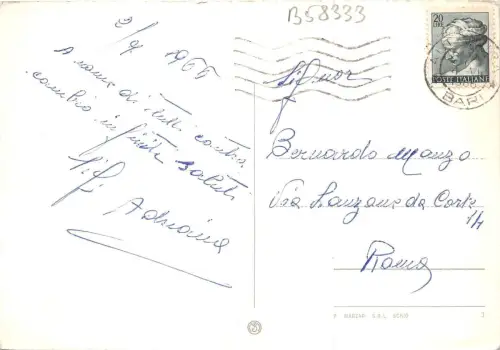 B58333
2/9 1966
A nome di tutti contra
cambio infinite saluti
Adriana
20
LIRE
POSTE ITALIANE
BARI
Signor
Bernardo Manzo
Via Lanzone da Corte
Roma